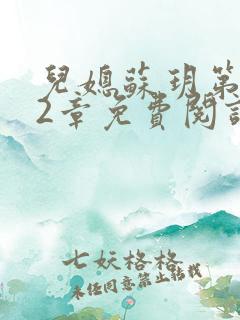 兒媳蘇玥第
2章免費閱讀
七妖格格
未經同意禁止轉載